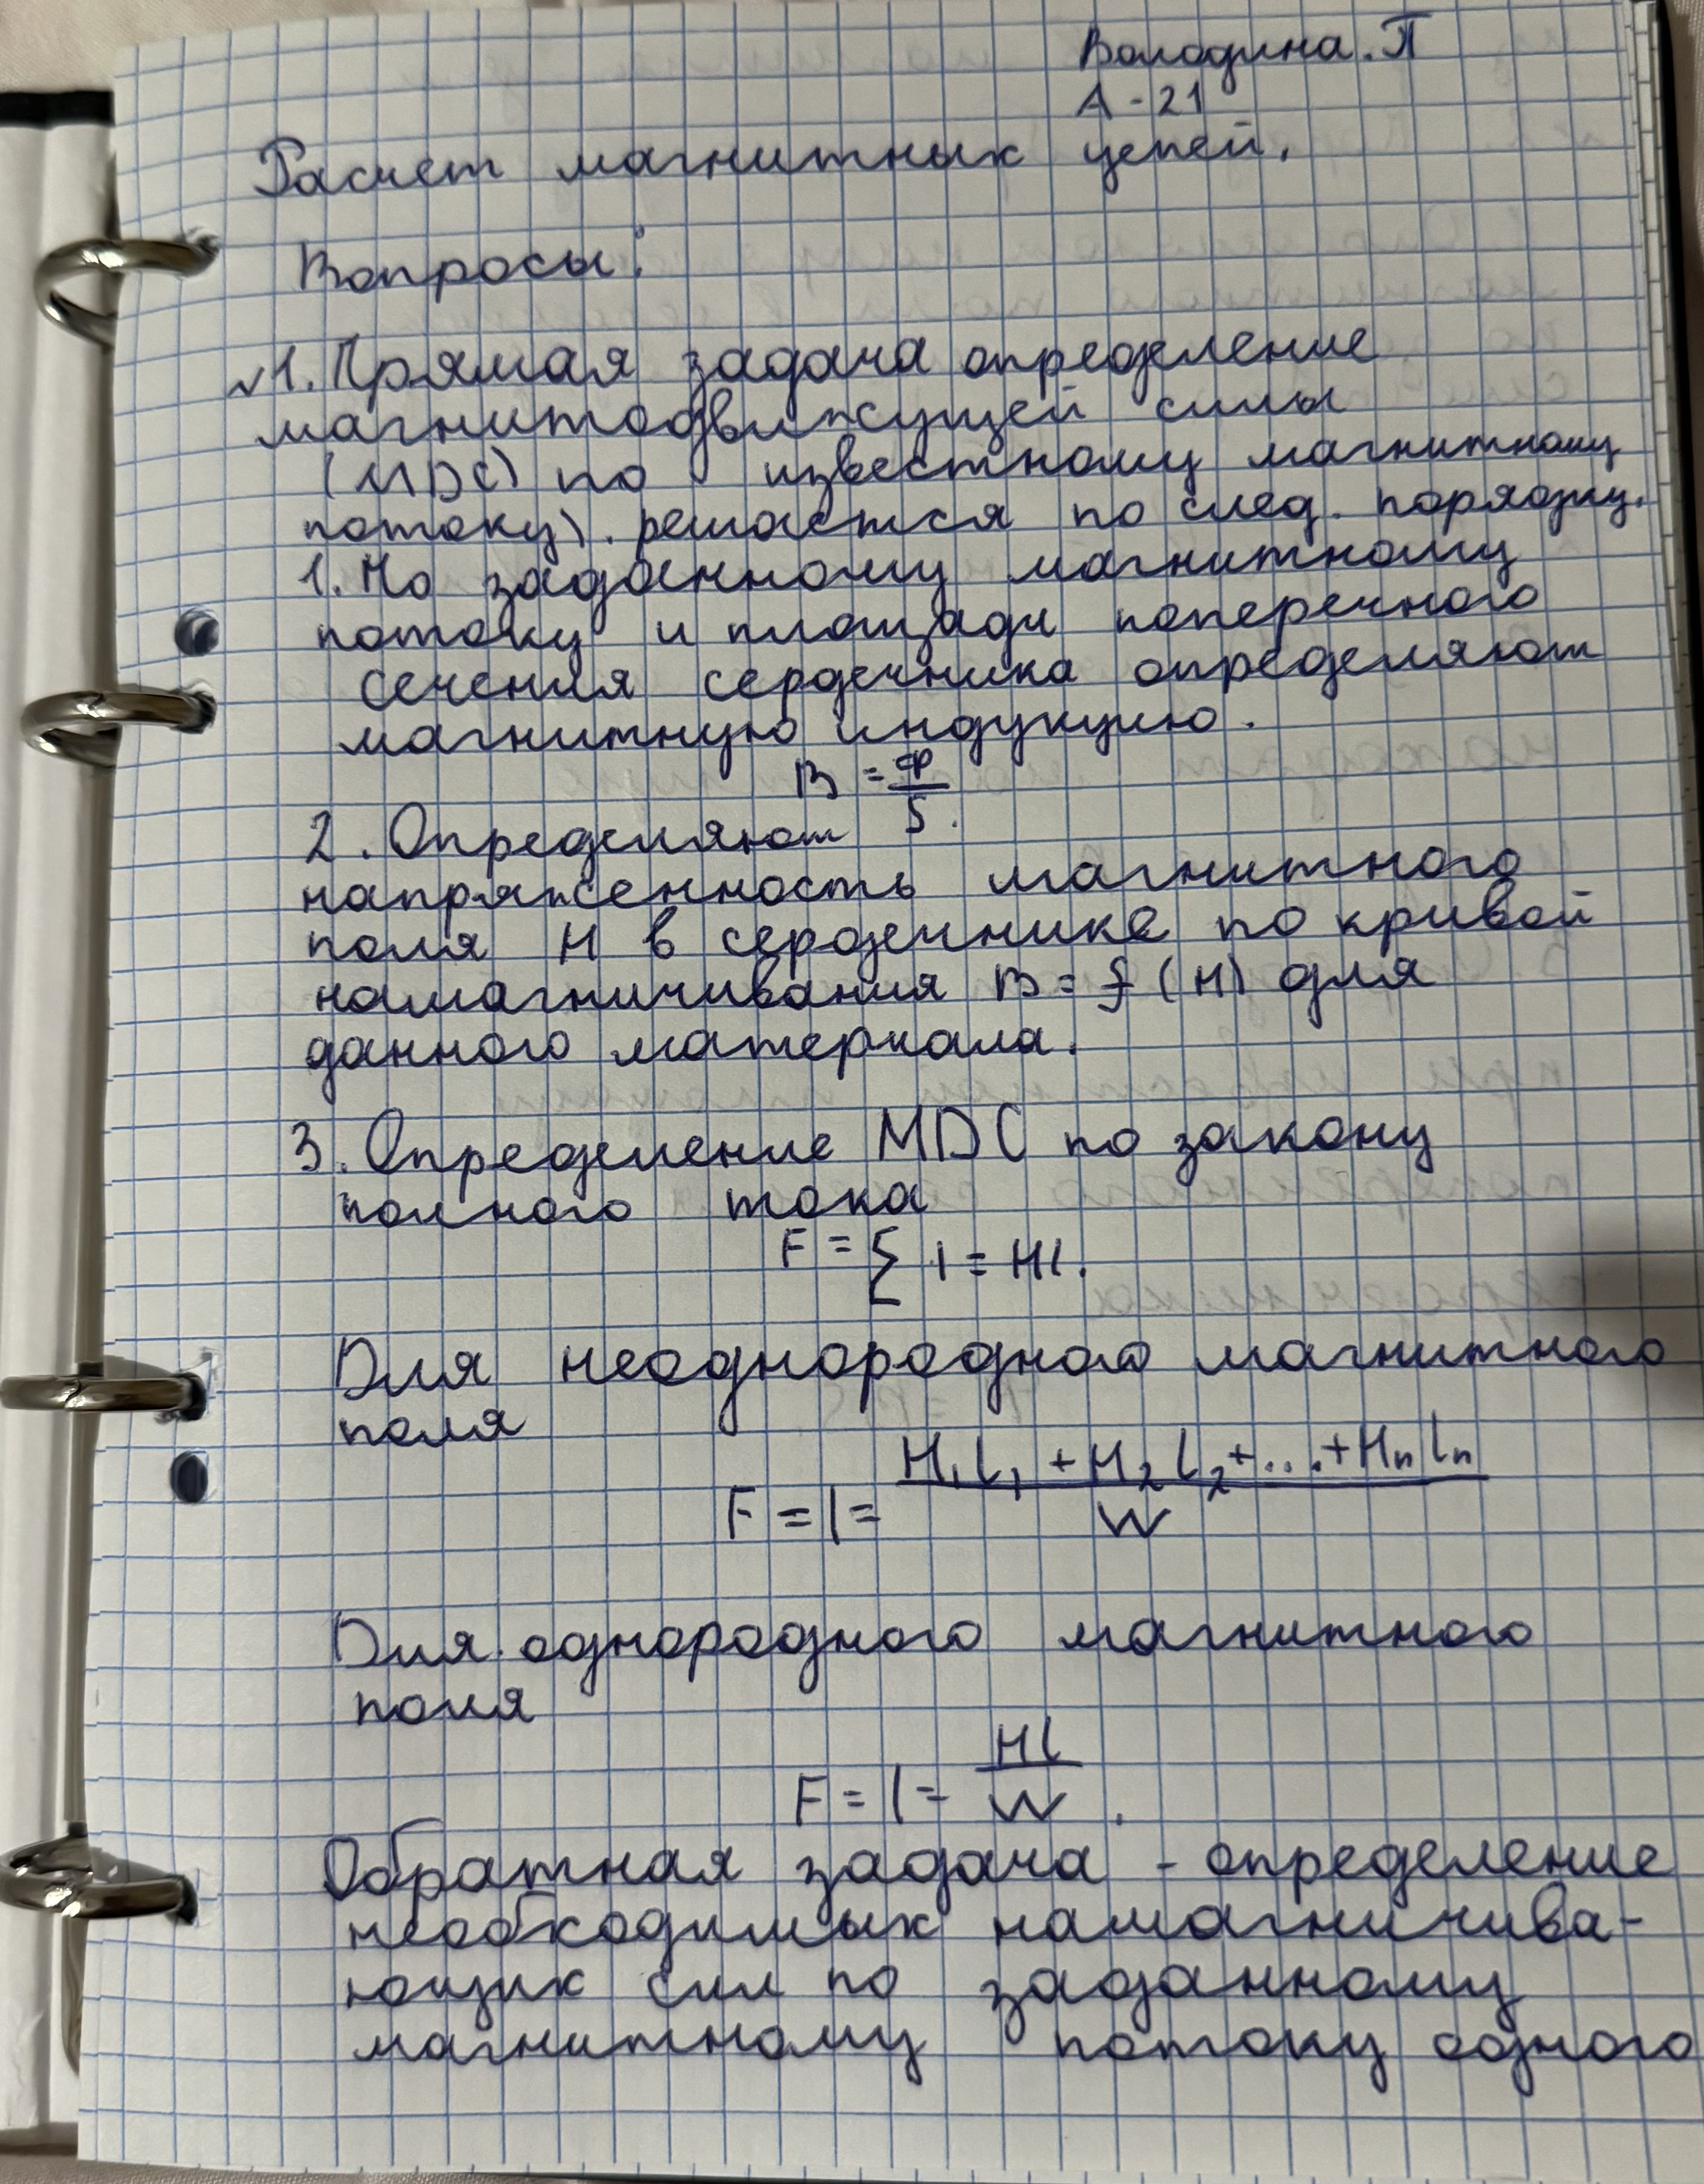 Володина.П
А-21
Расчет магнитных цепей.
Вопросы:
√1. Прямая задача определение
магнитодвижущей силы
(МДС) по известному магнитному
потоку). решается по след. порядку.
1. По заданному магнитному
потоку и площади поперечного
сечения сердечника определяют
магнитную индукцию.
B = Ф/S.
2. Определяют
напряженность магнитного
поля H в сердечнике по кривой
намагничивания B = f (H) для
данного материала.
3. Определение МДС по закону
полного тока
F = ∑ I = Hl.
Для неоднородного магнитного
поля
F = I = (H₁l₁ + H₂l₂ + ... + Hₙlₙ)/W
Для однородного магнитного
поля
F = I = Hl/W.
Обратная задача - определение
необходимых намагничива-
ющих сил по заданному
магнитному потоку одного